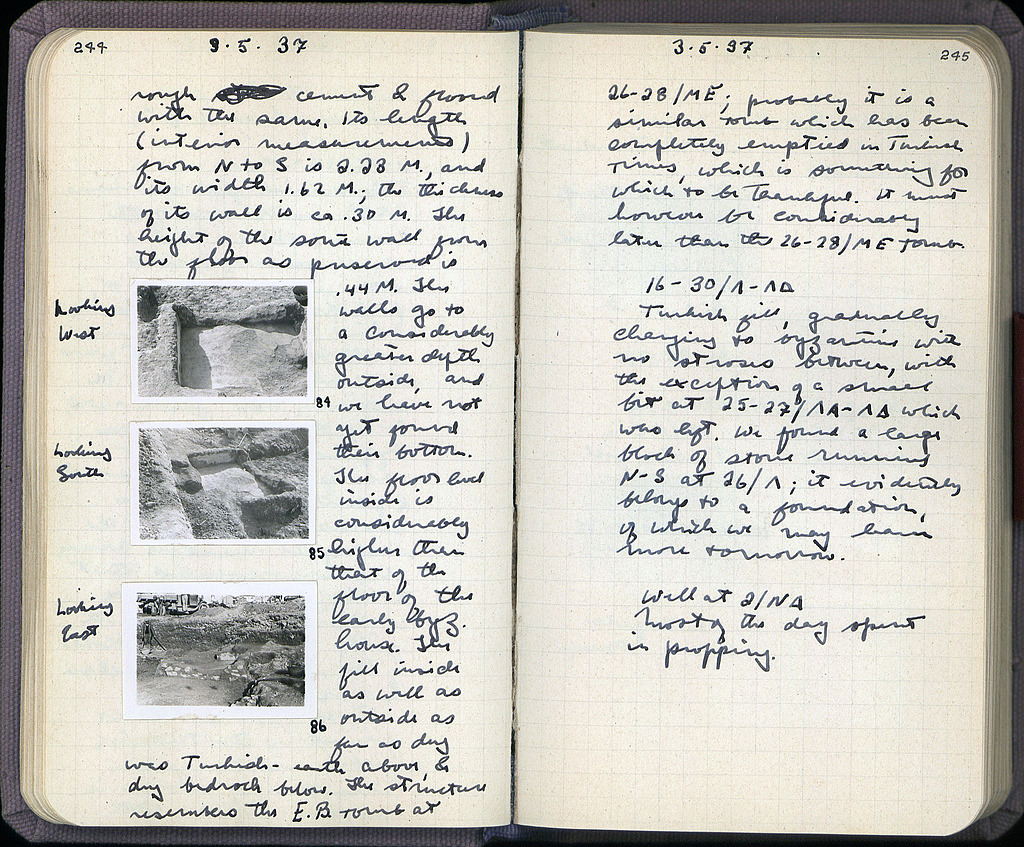 244
3.5.37
rough cement & floored
with the same. Its length
(interior measurements)
from N to S is 2.28 M., and
its width 1.62 M.; the thickness
of its wall is ca .30 M. The
height of the south wall from
the floor as preserved is
Looking
West
.44 M. The
walls go to
a considerably
greater depth
outside, and
84
we have not
yet found
their bottom.
Looking
South
The floor level
inside is
considerably
85
higher than
that of the
floor of the
early byz.
house. The
Looking
East
fill inside
as well as
outside as
86
far as dug
was Turkish - earth above, &
dug bedrock below. The structure
resembles the E.B. tomb at
3.5.37
245
26-28/ME; probably it is a
similar tomb which has been
completely emptied in Turkish
times, which is something for
which to be thankful. It must
however be considerably
later than the 26-28/ME tomb.
16-30/Λ-ΛΔ
Turkish fill, gradually
changing to byzantine with
no stroses between, with
the exception of a small
bit at 25-27/ΛΑ-ΛΔ which
was left. We found a large
block of stone running
N-S at 26/Λ; it evidently
belongs to a foundation,
of which we may learn
more tomorrow.
Well at 2/ΝΔ
Most of the day spent
in propping.